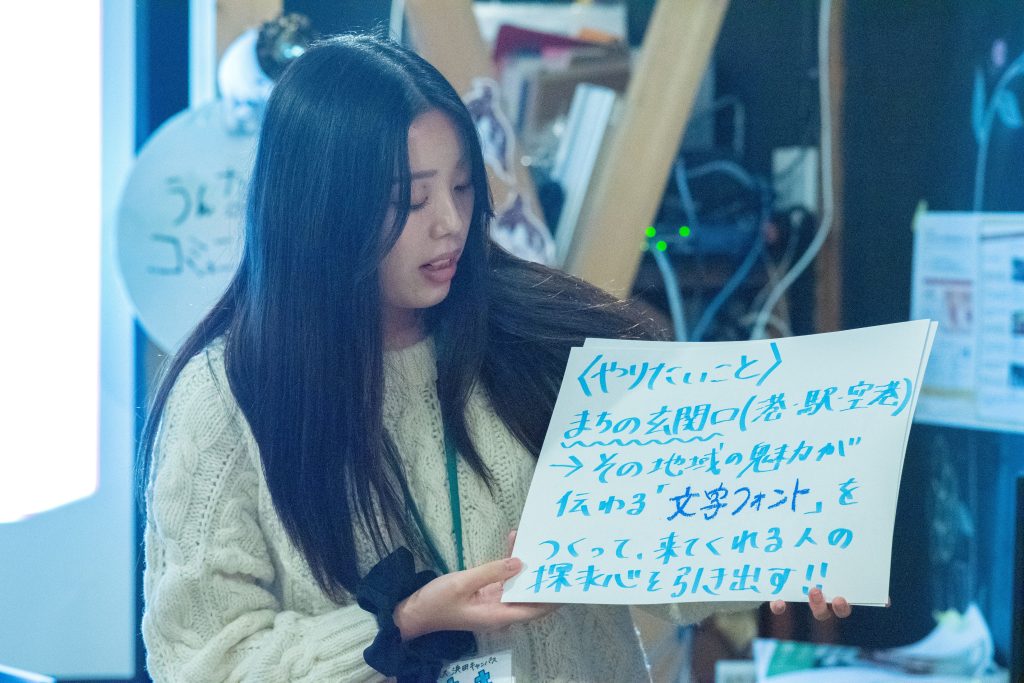 うん
コミュニ
〈やりたいこと〉
まちの玄関口(港・駅・空港)
→その地域の魅力が
伝わる「文字フォント」を
つくって、来てくれる人の
探求心を引き出す!!
浜田キャンパス